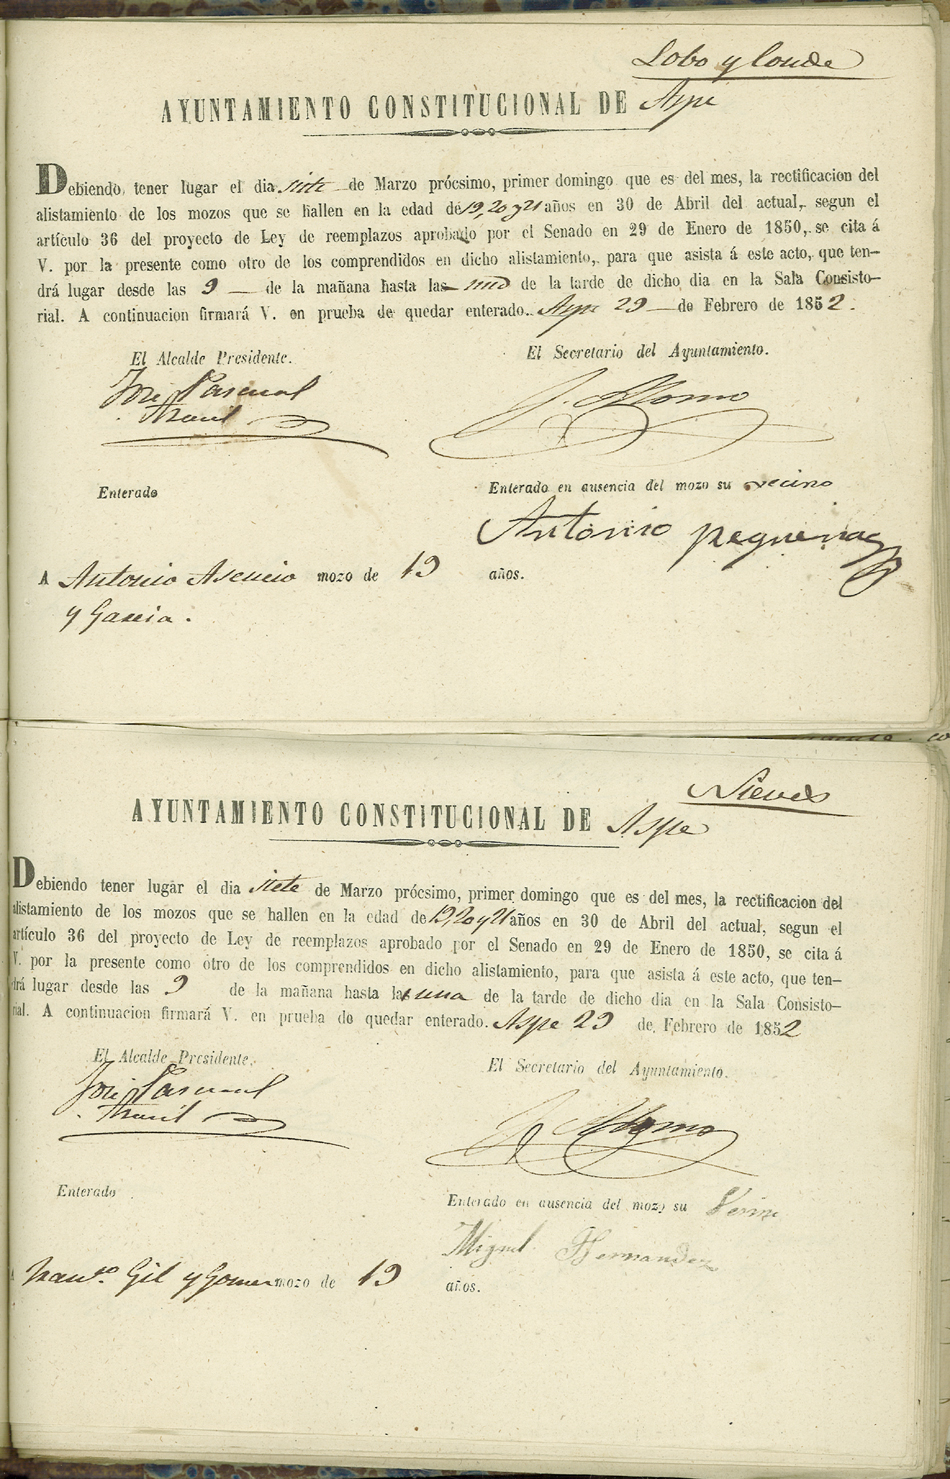 Lobo y Conde
AYUNTAMIENTO CONSTITUCIONAL DE Aspe
Debiendo tener lugar el dia siete de Marzo prócsimo, primer domingo que es del mes, la rectificacion del
alistamiento de los mozos que se hallen en la edad de 19, 20 y 21 años en 30 de Abril del actual, segun el
artículo 36 del proyecto de Ley de reemplazos aprobado por el Senado en 29 de Enero de 1850, se cita á
V. por la presente como otro de los comprendidos en dicho alistamiento, para que asista á este acto, que ten-
drá lugar desde las 9 de la mañana hasta las una de la tarde de dicho dia en la Sala Consisto-
rial. A continuacion firmará V. en prueba de quedar enterado. Aspe 29 de Febrero de 1852.
El Alcalde Presidente. El Secretario del Ayuntamiento.
José Pascual J. Alonso
Enterado Enterado en ausencia del mozo su vecino
Antonio pequenag
A Antonio Asencio mozo de 19 años.
y Garcia.
Nieves
AYUNTAMIENTO CONSTITUCIONAL DE Aspe
Debiendo tener lugar el dia siete de Marzo prócsimo, primer domingo que es del mes, la rectificacion del
alistamiento de los mozos que se hallen en la edad de 19, 20 y 21 años en 30 de Abril del actual, segun el
artículo 36 del proyecto de Ley de reemplazos aprobado por el Senado en 29 de Enero de 1850, se cita á
V. por la presente como otro de los comprendidos en dicho alistamiento, para que asista á este acto, que ten-
drá lugar desde las 9 de la mañana hasta la una de la tarde de dicho dia en la Sala Consisto-
rial. A continuacion firmará V. en prueba de quedar enterado. Aspe 29 de Febrero de 1852
El Alcalde Presidente. El Secretario del Ayuntamiento.
José Pascual J. Alonso
Enterado Enterado en ausencia del mozo su Vecino
Miguel Hernandez
A Franco. Gil y Gomez mozo de 19 años.